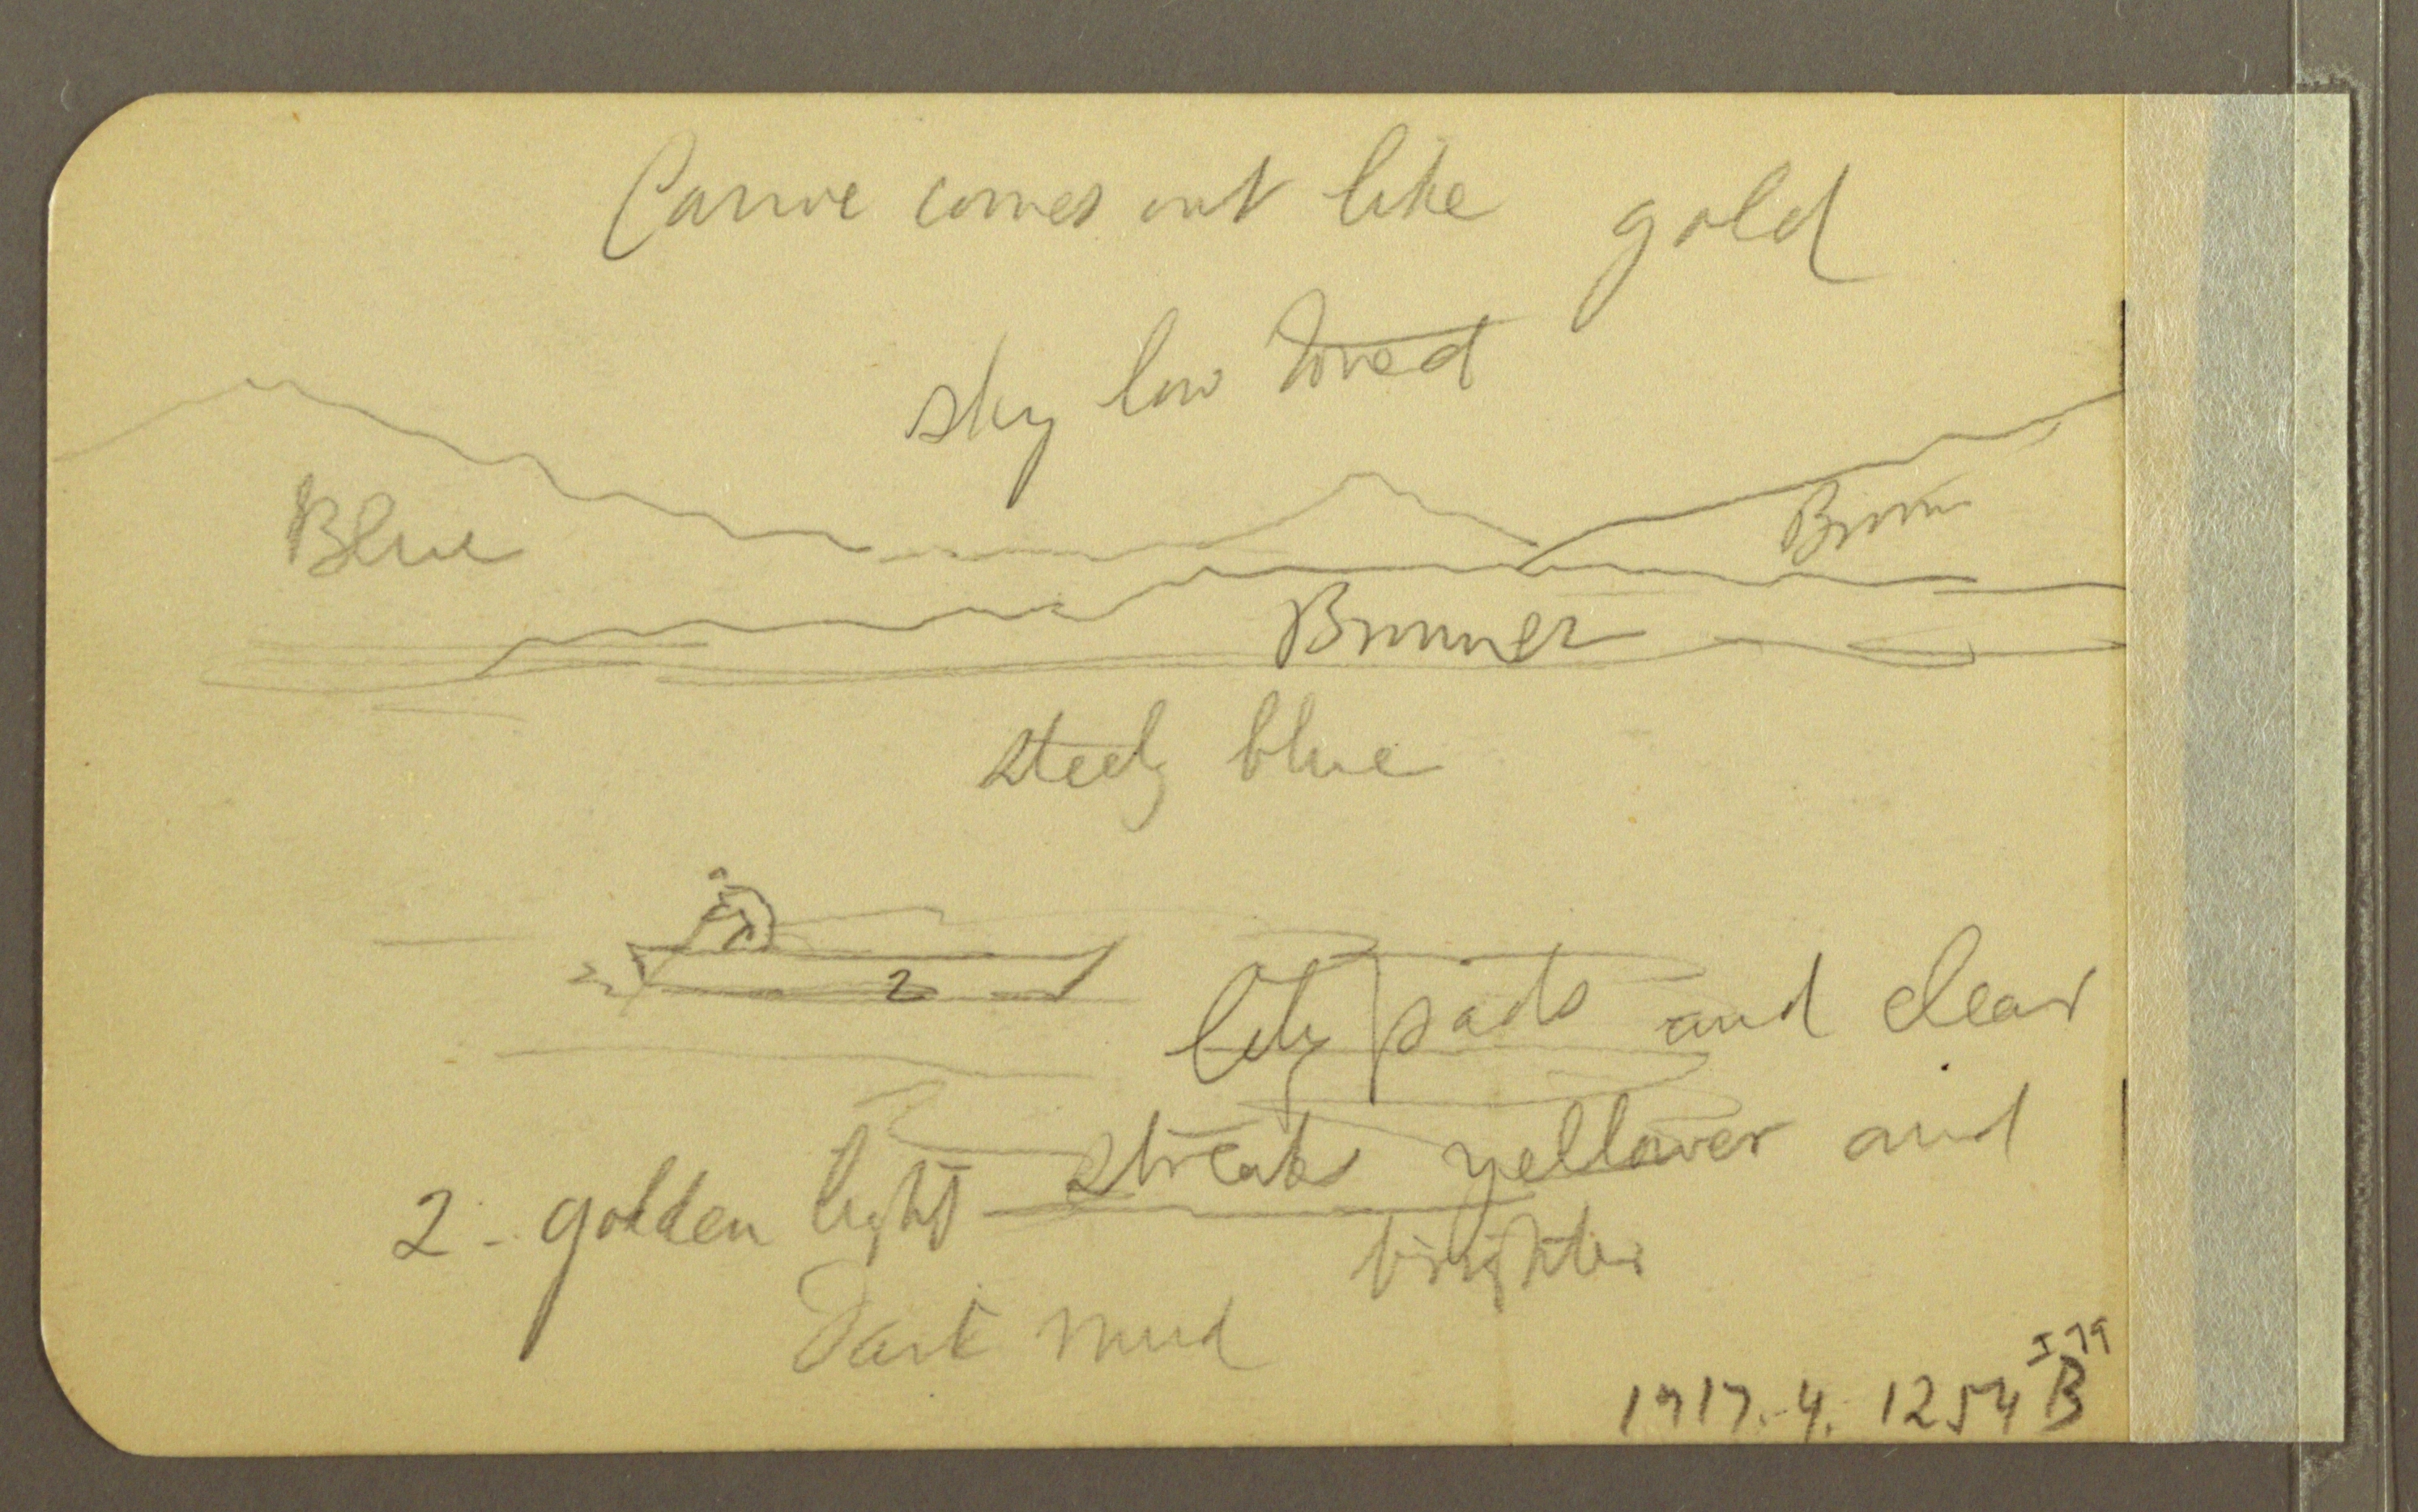 Canoe comes out like gold
sky low toned
Blue
Brown
Browner
steely blue
2
2
lily pads and clear
streaks yellower and
2 - golden light
brighter
Dark mud
1917.-4. 1254 B